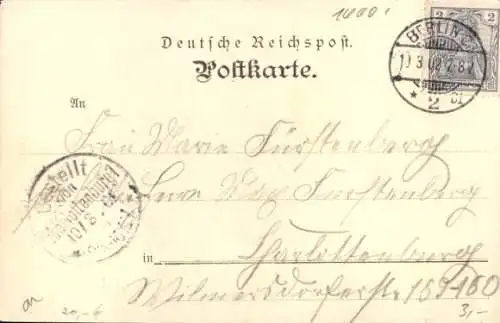 1600
Deutsche Reichspost.
Postkarte.
2 2
BERLIN C
10 3 02 7-8 V
* 2 c *
An
Frau Marie Fürstenberg
Herrn Max Fürstenberg
Bestellt
vom
Charlottenburg 1
10/3
in Charlottenburg
Wilmersdorferstr 159-160
20,-6
3,-